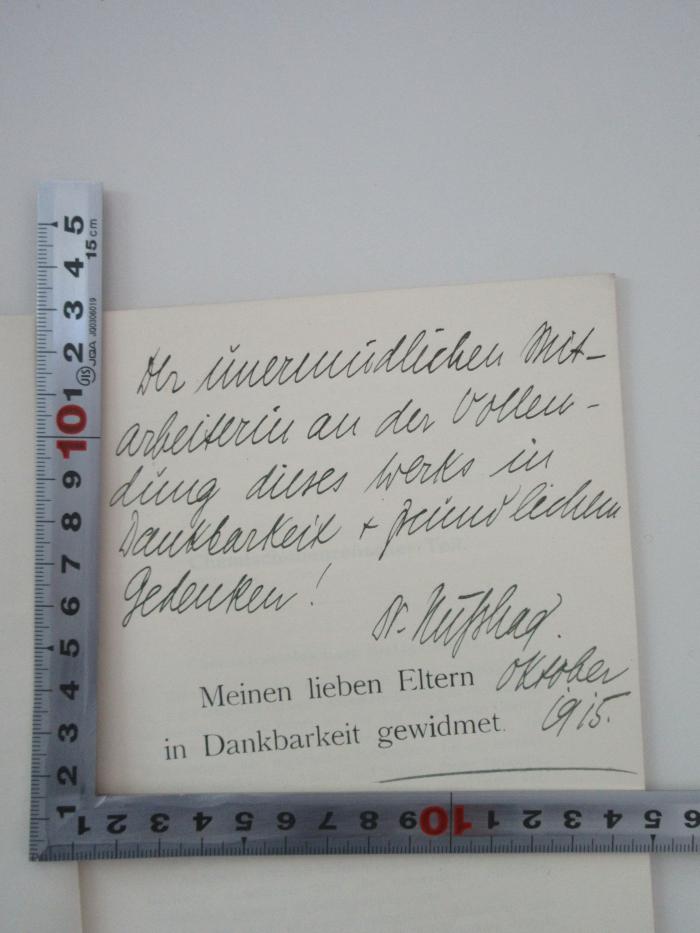 Der unermüdlichen Mit-
arbeiterin an der Vollen-
dung dieses Werks in
Dankbarkeit + freundlichem
Gedenken!
Dr.
Oktober
1915.
Meinen lieben Eltern
in Dankbarkeit gewidmet.
15 cm
5
4
3
2
1
10
9
8
7
6
5
4
3
2
1
JIS JQA JQ0306019
1 2 3 4 5 6 7 8 9 10 1 2 3 4 5 6